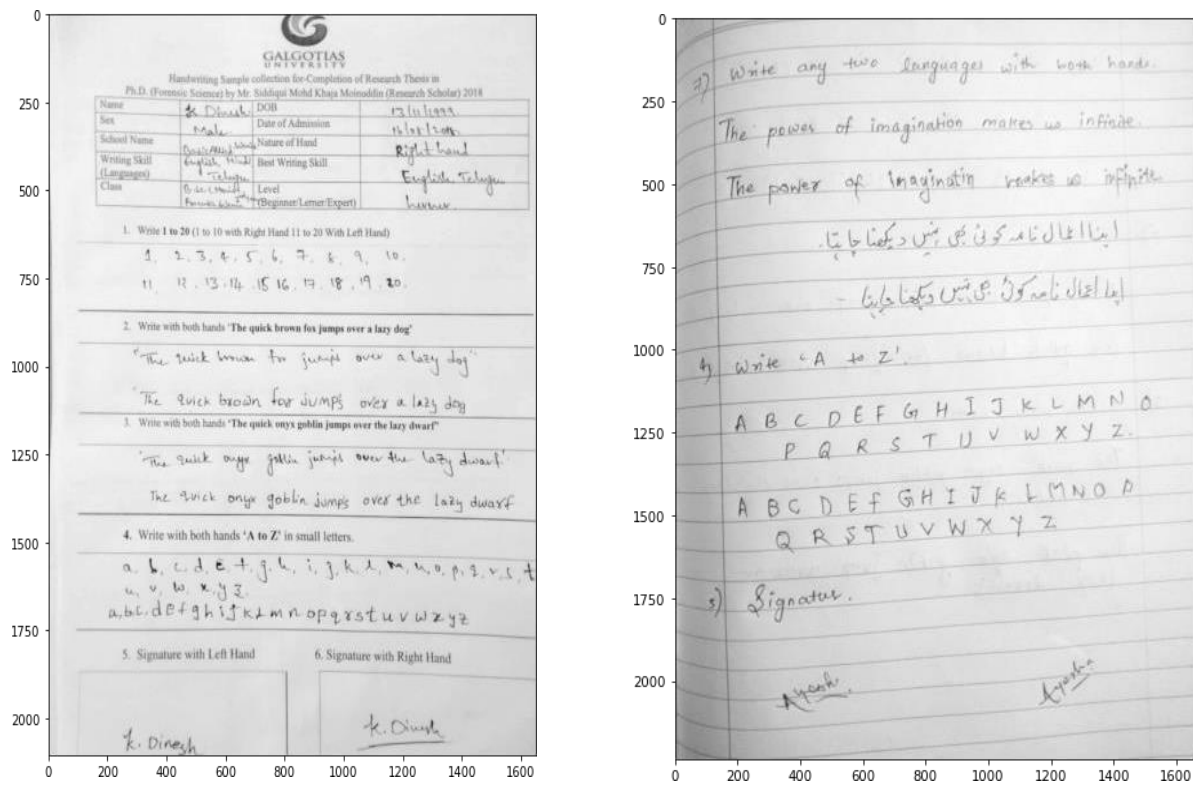 GALGOTIAS
UNIVERSITY
Handwriting Sample collection for-Completion of Research Thesis in
Ph.D. (Forensic Science) by Mr. Siddiqui Mohd Khaja Moinoddin (Research Scholar) 2018
Name K Dinesh DOB 13/11/1999
Sex Male Date of Admission
School Name Nature of Hand Right hand
Writing Skill English Hindi Best Writing Skill English, Telugu
(Languages) Telugu
Class Level
(Beginner/Lerner/Expert) Lerner
1. Write 1 to 20 (1 to 10 with Right Hand 11 to 20 With Left Hand)
1, 2, 3, 4, 5, 6, 7, 8, 9, 10.
11 12, 13, 14, 15 16, 17, 18, 19, 20.
2. Write with both hands 'The quick brown fox jumps over a lazy dog'
"The quick brown fox jumps over a lazy dog"
"The quick brown fox jumps over a lazy dog
3. Write with both hands 'The quick onyx goblin jumps over the lazy dwarf'
'The quick onyx goblin jumps over the lazy dwarf'
The quick onyx goblin jumps over the lazy dwarf
4. Write with both hands 'A to Z' in small letters.
a, b, c, d, e, f, g, h, i, j, k, l, m, n, o, p, q, r, s, t
u, v, w, x, y z.
a, b c, d e f g h i j k l m n o p q r s t u v w x y z
5. Signature with Left Hand 6. Signature with Right Hand
K. Dinesh K. Dinesh
0
250
500
750
1000
1250
1500
1750
2000
0 200 400 600 800 1000 1200 1400 1600
Write any two languages with both hands.
The power of imagination makes us infinite.
The power of Imaginatin makes us infinite
اپنا اعمال نامہ کوئی بھی نہیں دیکھنا چاہتا۔
اپنا اعمال نامہ کوئی بھی نہیں دیکھنا چاہتا۔
4) Write 'A to Z'.
A B C D E F G H I J K L M N O
P Q R S T U V W X Y Z.
A B C D E F G H I J K L M N O P
Q R S T U V W X Y Z
5) Signatur.
Ayesha Ayesha
0
250
500
750
1000
1250
1500
1750
2000
0 200 400 600 800 1000 1200 1400 1600